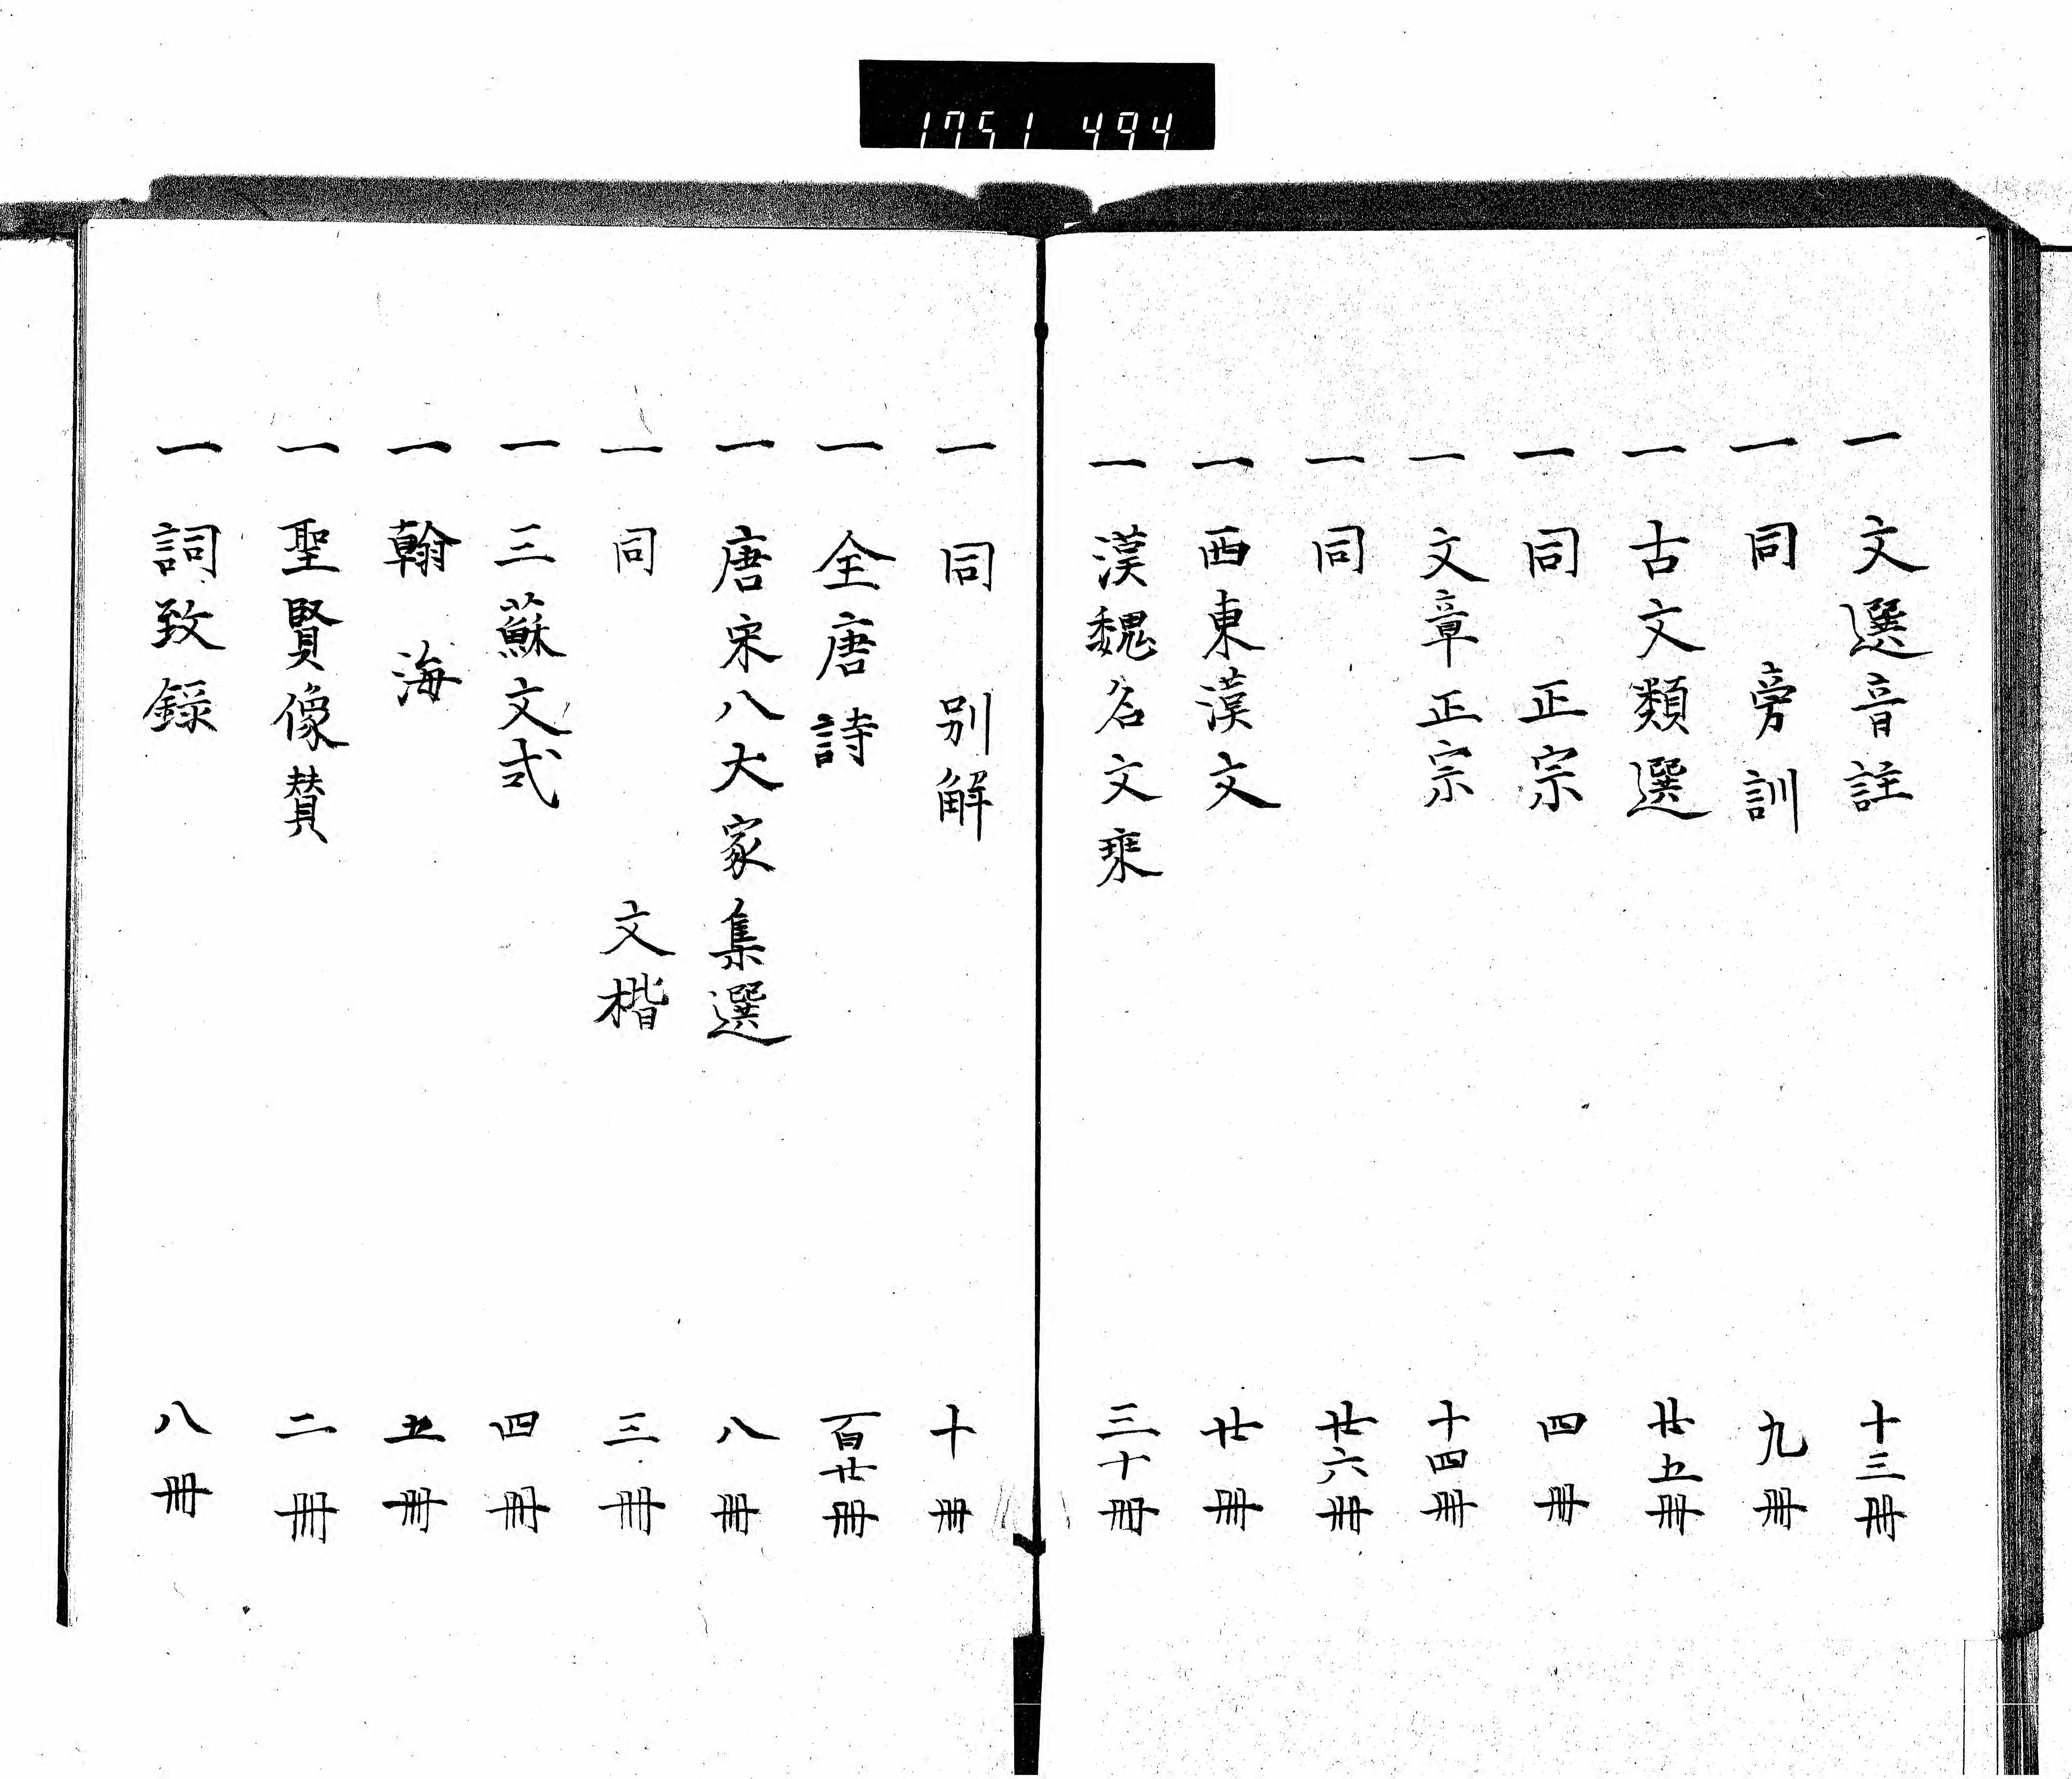 1751 494
一 文選音註 十三冊
一 同 旁訓 九冊
一 古文類選 廿五冊
一 同 正宗 四冊
一 文章正宗 十四冊
一 同 廿六冊
一 西東漢文 廿冊
一 漢魏名文乘 三十冊
一 同 別解 十冊
一 全唐詩 百廿冊
一 唐宋八大家集選 八冊
一 同 文楷 三冊
一 三蘇文式 四冊
一 翰海 五冊
一 聖賢像賛 二冊
一 詞致録 八冊